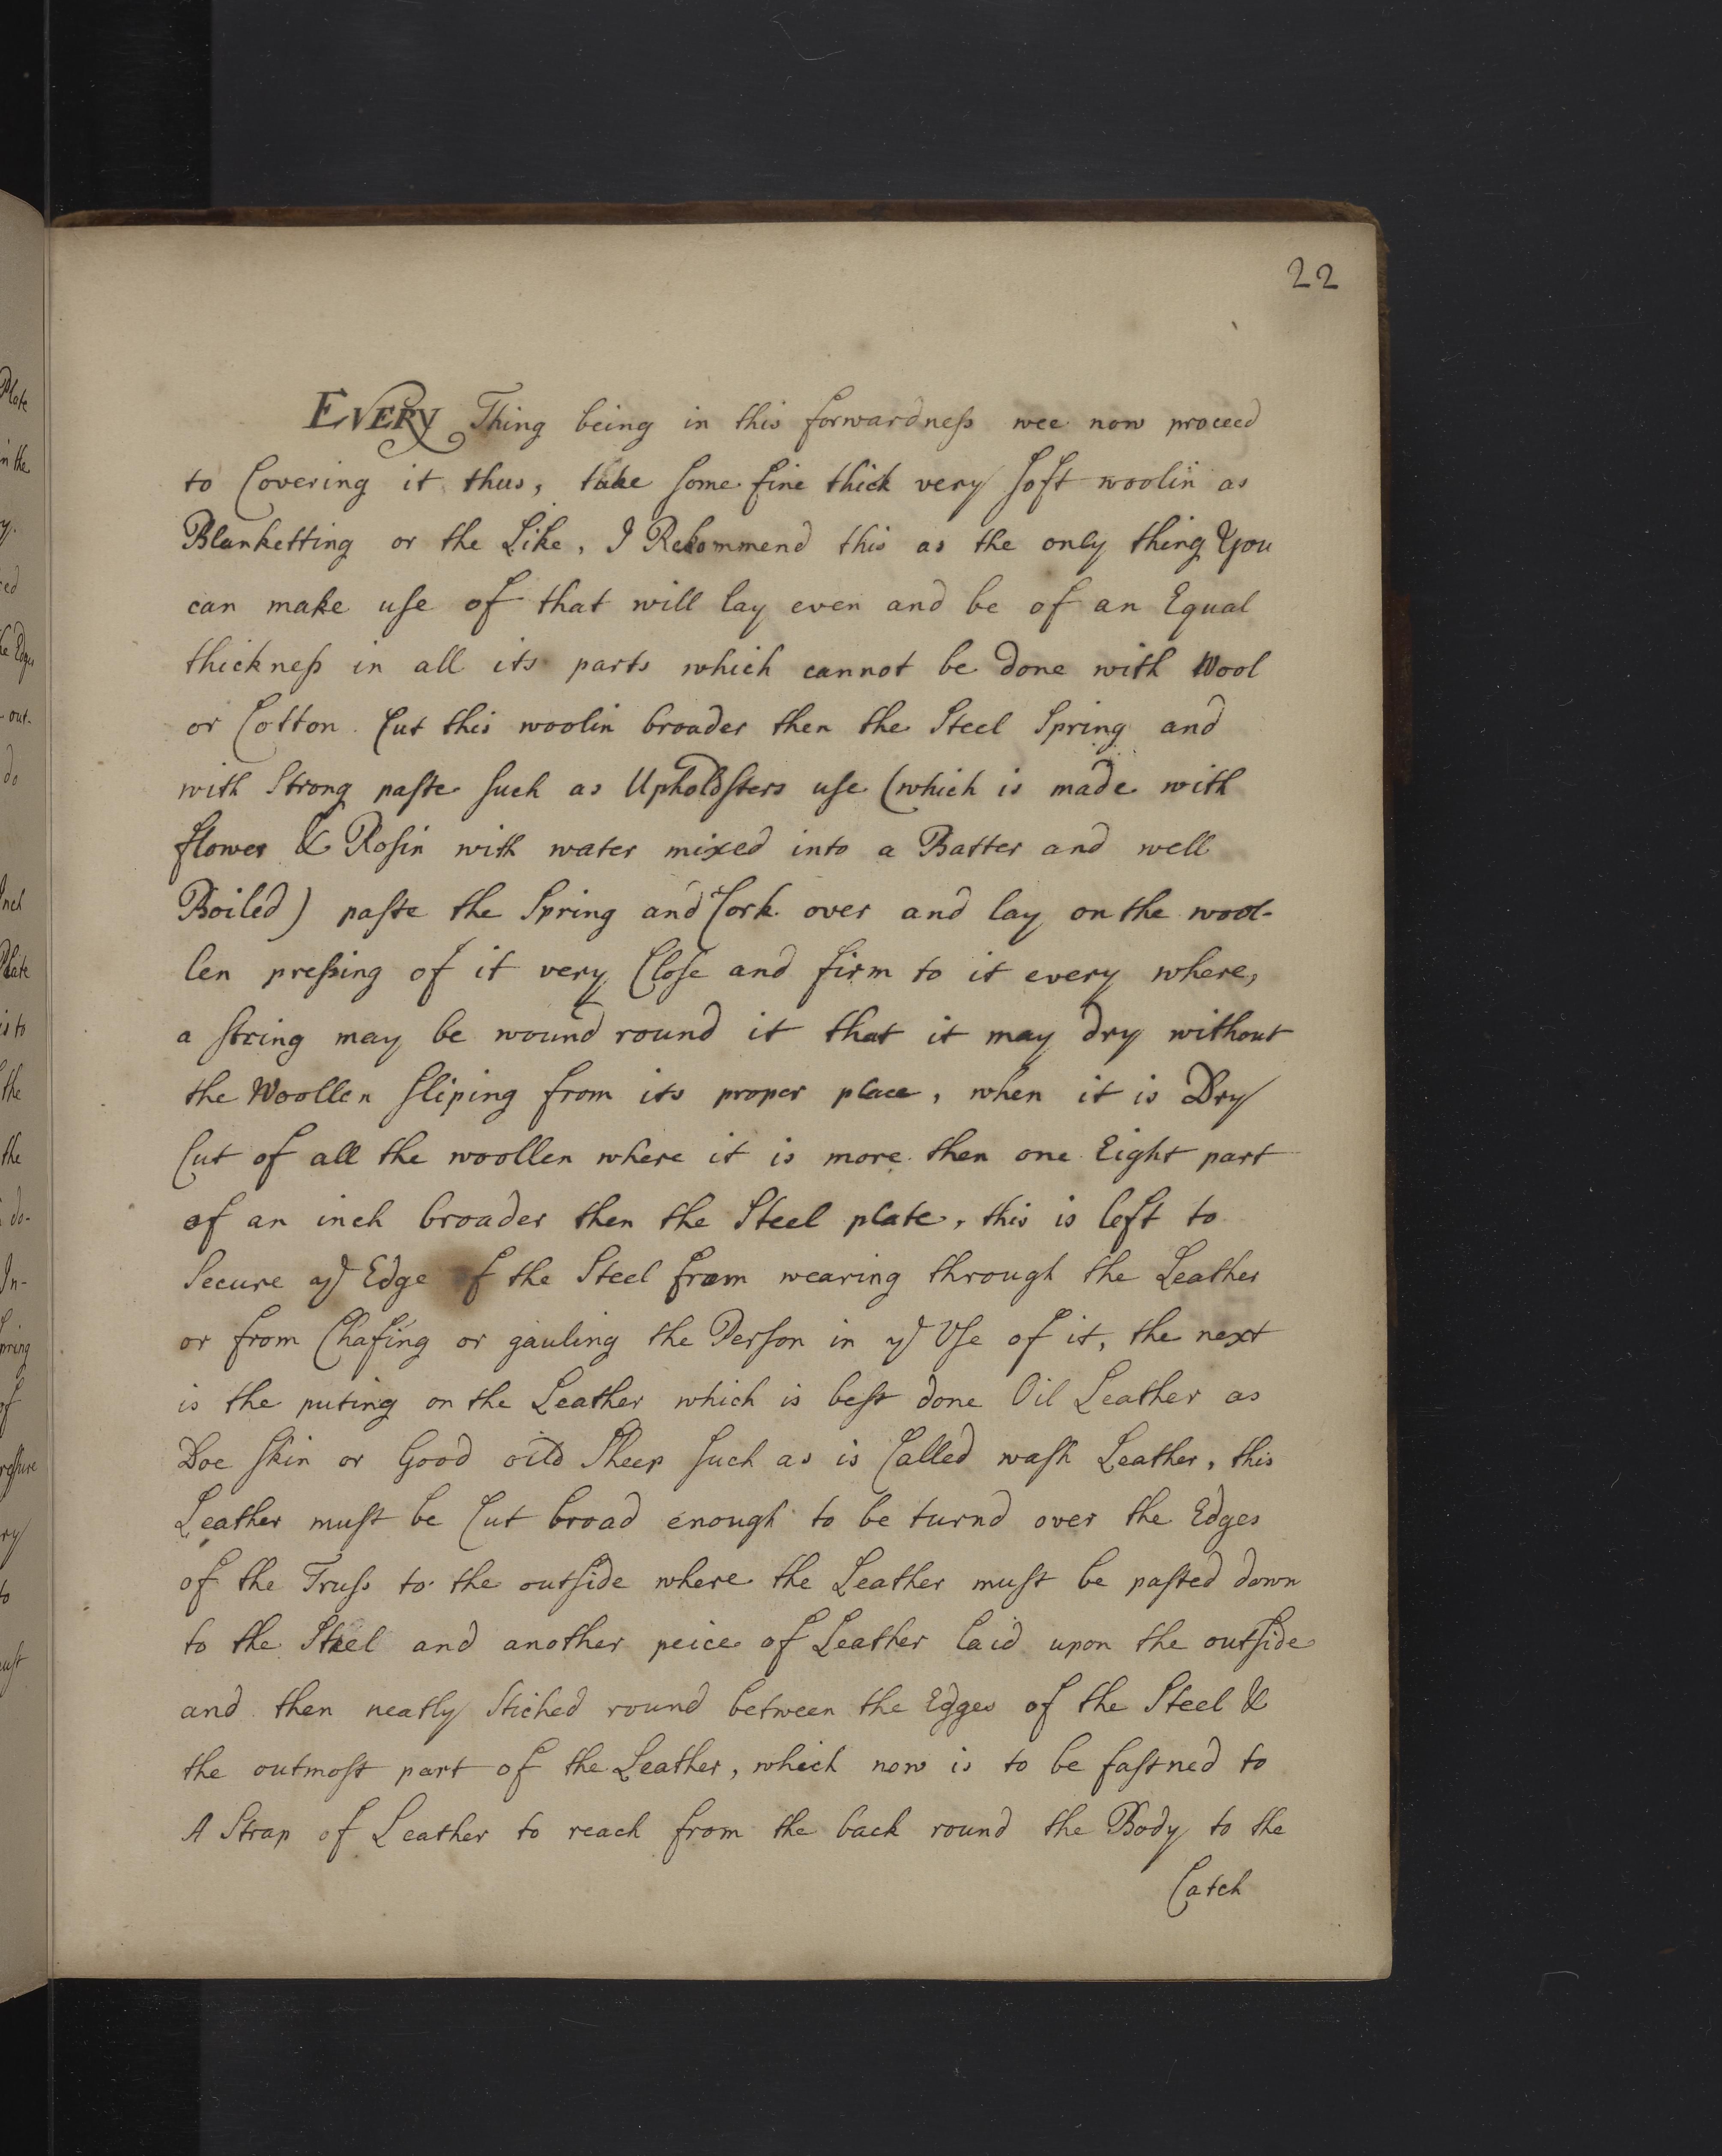 22
EVERY Thing being in this forwardneſs wee now proceed
to Covering it thus, take ſome fine thick very ſoft woolin as
Blanketting or the Like, I Rekommend this as the only thing You
can make uſe of that will lay even and be of an Equal
thickneſs in all its parts which cannot be done with Wool
or Cotton. Cut this woolin broader then the Steel Spring and
with Strong paſte ſuch as Upholdſters uſe (which is made with
flower & Roſin with water mixed into a Batter and well
Boiled) paſte the Spring and Cork over and lay on the wool-
len preſsing of it very Cloſe and firm to it every where,
a ſtring may be wound round it that it may dry without
the Woollen ſliping from its proper place, when it is Dry
Cut of all the woollen where it is more then one Eight part
of an inch broader then the Steel plate, this is left to
Secure ye Edge of the Steel from wearing through the Leather
or from Chafing or gauling the Perſon in ye Uſe of it, the next
is the puting on the Leather which is beſt done Oil Leather as
Doe ſkin or Good oild Sheep ſuch as is Called waſh Leather, this
Leather muſt be Cut broad enough to be turnd over the Edges
of the Truſs to the outſide where the Leather muſt be paſted down
to the Steel and another peice of Leather laid upon the outſide
and then neatly Stiched round between the Egges of the Steel &
the outmoſt part of the Leather, which now is to be faſtned to
A Strap of Leather to reach from the back round the Body to the
Catch